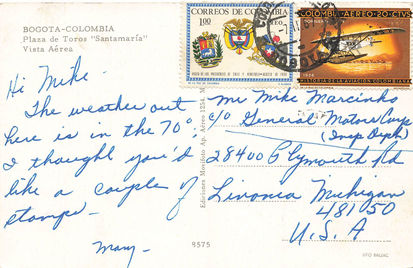 BOGOTA-COLOMBIA
Plaza de Toros "Santamaría"
Vista Aérea
Hi Mike-
The weather out
here is in the 70°,
I thought you'd
like a couple of
stamps-
Mary-
9575
Ediciones Movifoto Ap. Aéreo 1254
CORREOS DE COLOMBIA
1.00
AEREO
COLOMBIA-AEREO-20 CTVS
1924
HISTORIA DE LA AVIACION COLOMBIANA
Mr Mike Marcinko
c/o General Motors Corp
(Insp Dept)
28400 Plymouth Rd
Livonia Michigan
481050
U.S.A